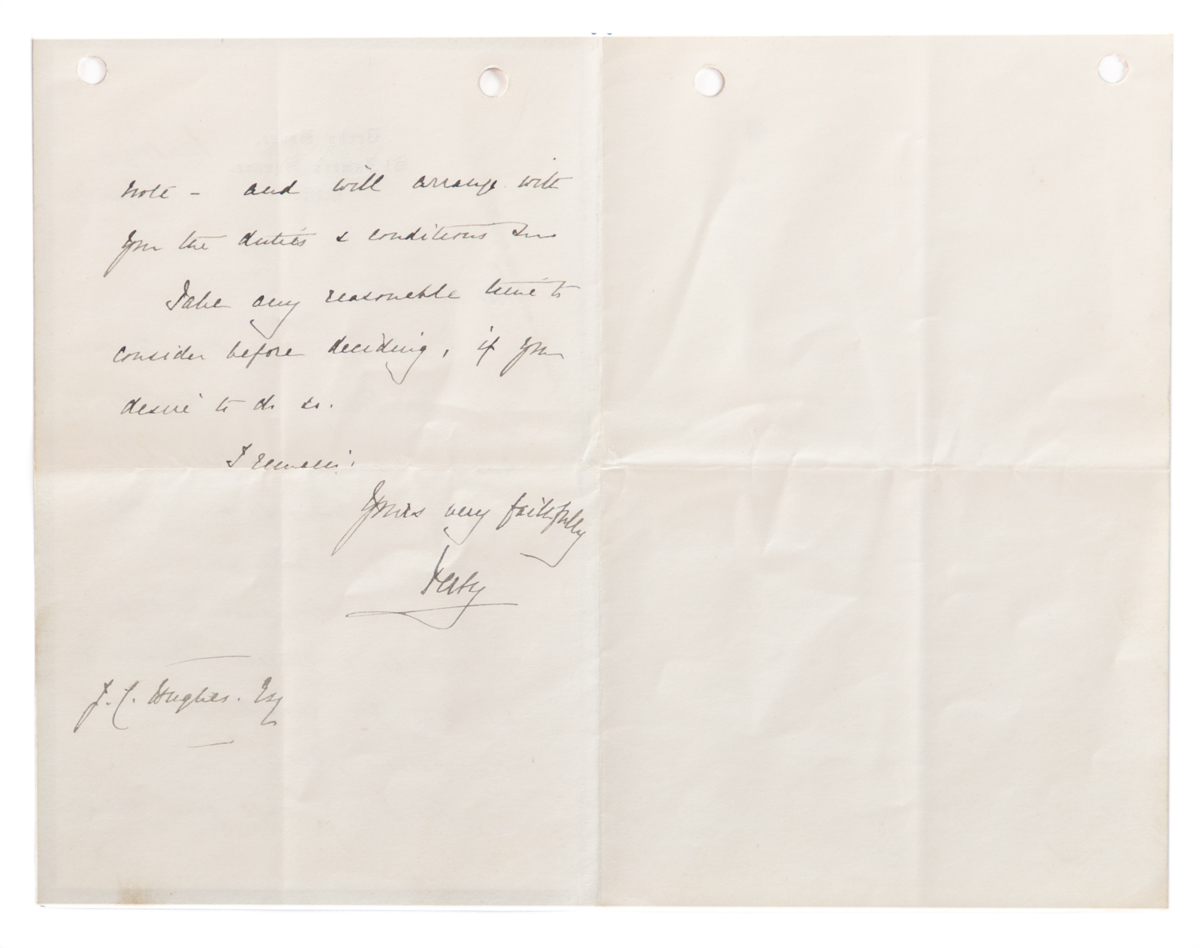 note - and will arrange with
you the duties & conditions
Take any reasonable time to
consider before deciding, if you
desire to do so.
I remain.
Yours very faithfully
Derby
J. C. Hughes. Esq